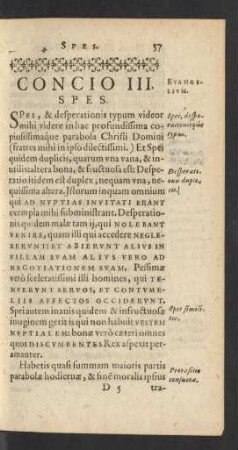 SPES. 57
CONCIO III.
SPES.
SPEI, & desperationis typum videor
mihi videre in hac profundissima co-
piosissimaque parabola Christi Domini
(fratres mihi in ipso dilectissimi.) Et Spei
quidem duplicis, quarum vna vana, & in-
utilis altera bona, & fructuosa est: Despe-
ratio itidem est duplex, nequam vna, ne-
quissima altera. Istorum inquam omnium
qui AD NVPTIAS INVITATI ERANT
exempla mihi subministrant. Desperatio-
nis quidem malæ tam ij, qui NOLEBANT
VENIRE, quam illi qui accedere NEGLE-
XERUNT: ET ABIERVNT ALIVS IN
VILLAM SVAM ALIVS VERO AD
NEGOTIATIONEM SVAM. Pessimæ
verò sceleratissimi illi homines, qui TE-
NVERVNT SERVOS, ET CONTVME-
LIIS AFFECTOS OCCIDERVNT.
Spei autem inanis quidem & infructuosæ
imaginem gerit is qui non habuit VESTEM
NVPTIALEM: bonæ verò cæteri omnes
quos DISCVMBENTES Rex aspexit per-
amanter.
Habetis quasi summam maioris partis
parabolæ hodiernæ, & sinè moralis ipsius
D 5 tra-
EVANGE-
LIVM.
Spei, despe-
rationisque
typus.
Desperati-
onis duplex
Spei simili-
tudo.
Propositio